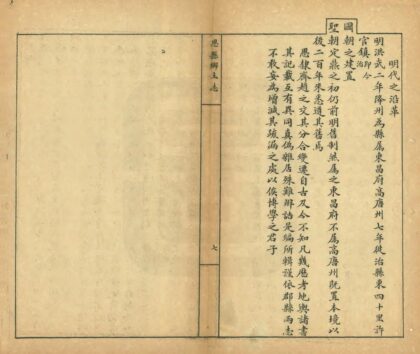 明代之沿革
明洪武二年降州為縣屬東昌府高唐州七年徙治縣東四十里許
官鎮即今治
國朝之建置
聖朝定鼎之初仍前明舊制然屬之東昌府不屬高唐州既置本境以
後二百年來悉遵其舊焉
恩隸齊趙之交其分合變遷自古及今不知凡幾歷考地輿諸書
其記載互有異同真偽雜居殊難辯詰是編所輯謹依郡縣兩志
不敢妄為增減其疏漏之處以俟博學之君子
恩縣鄉土志
七